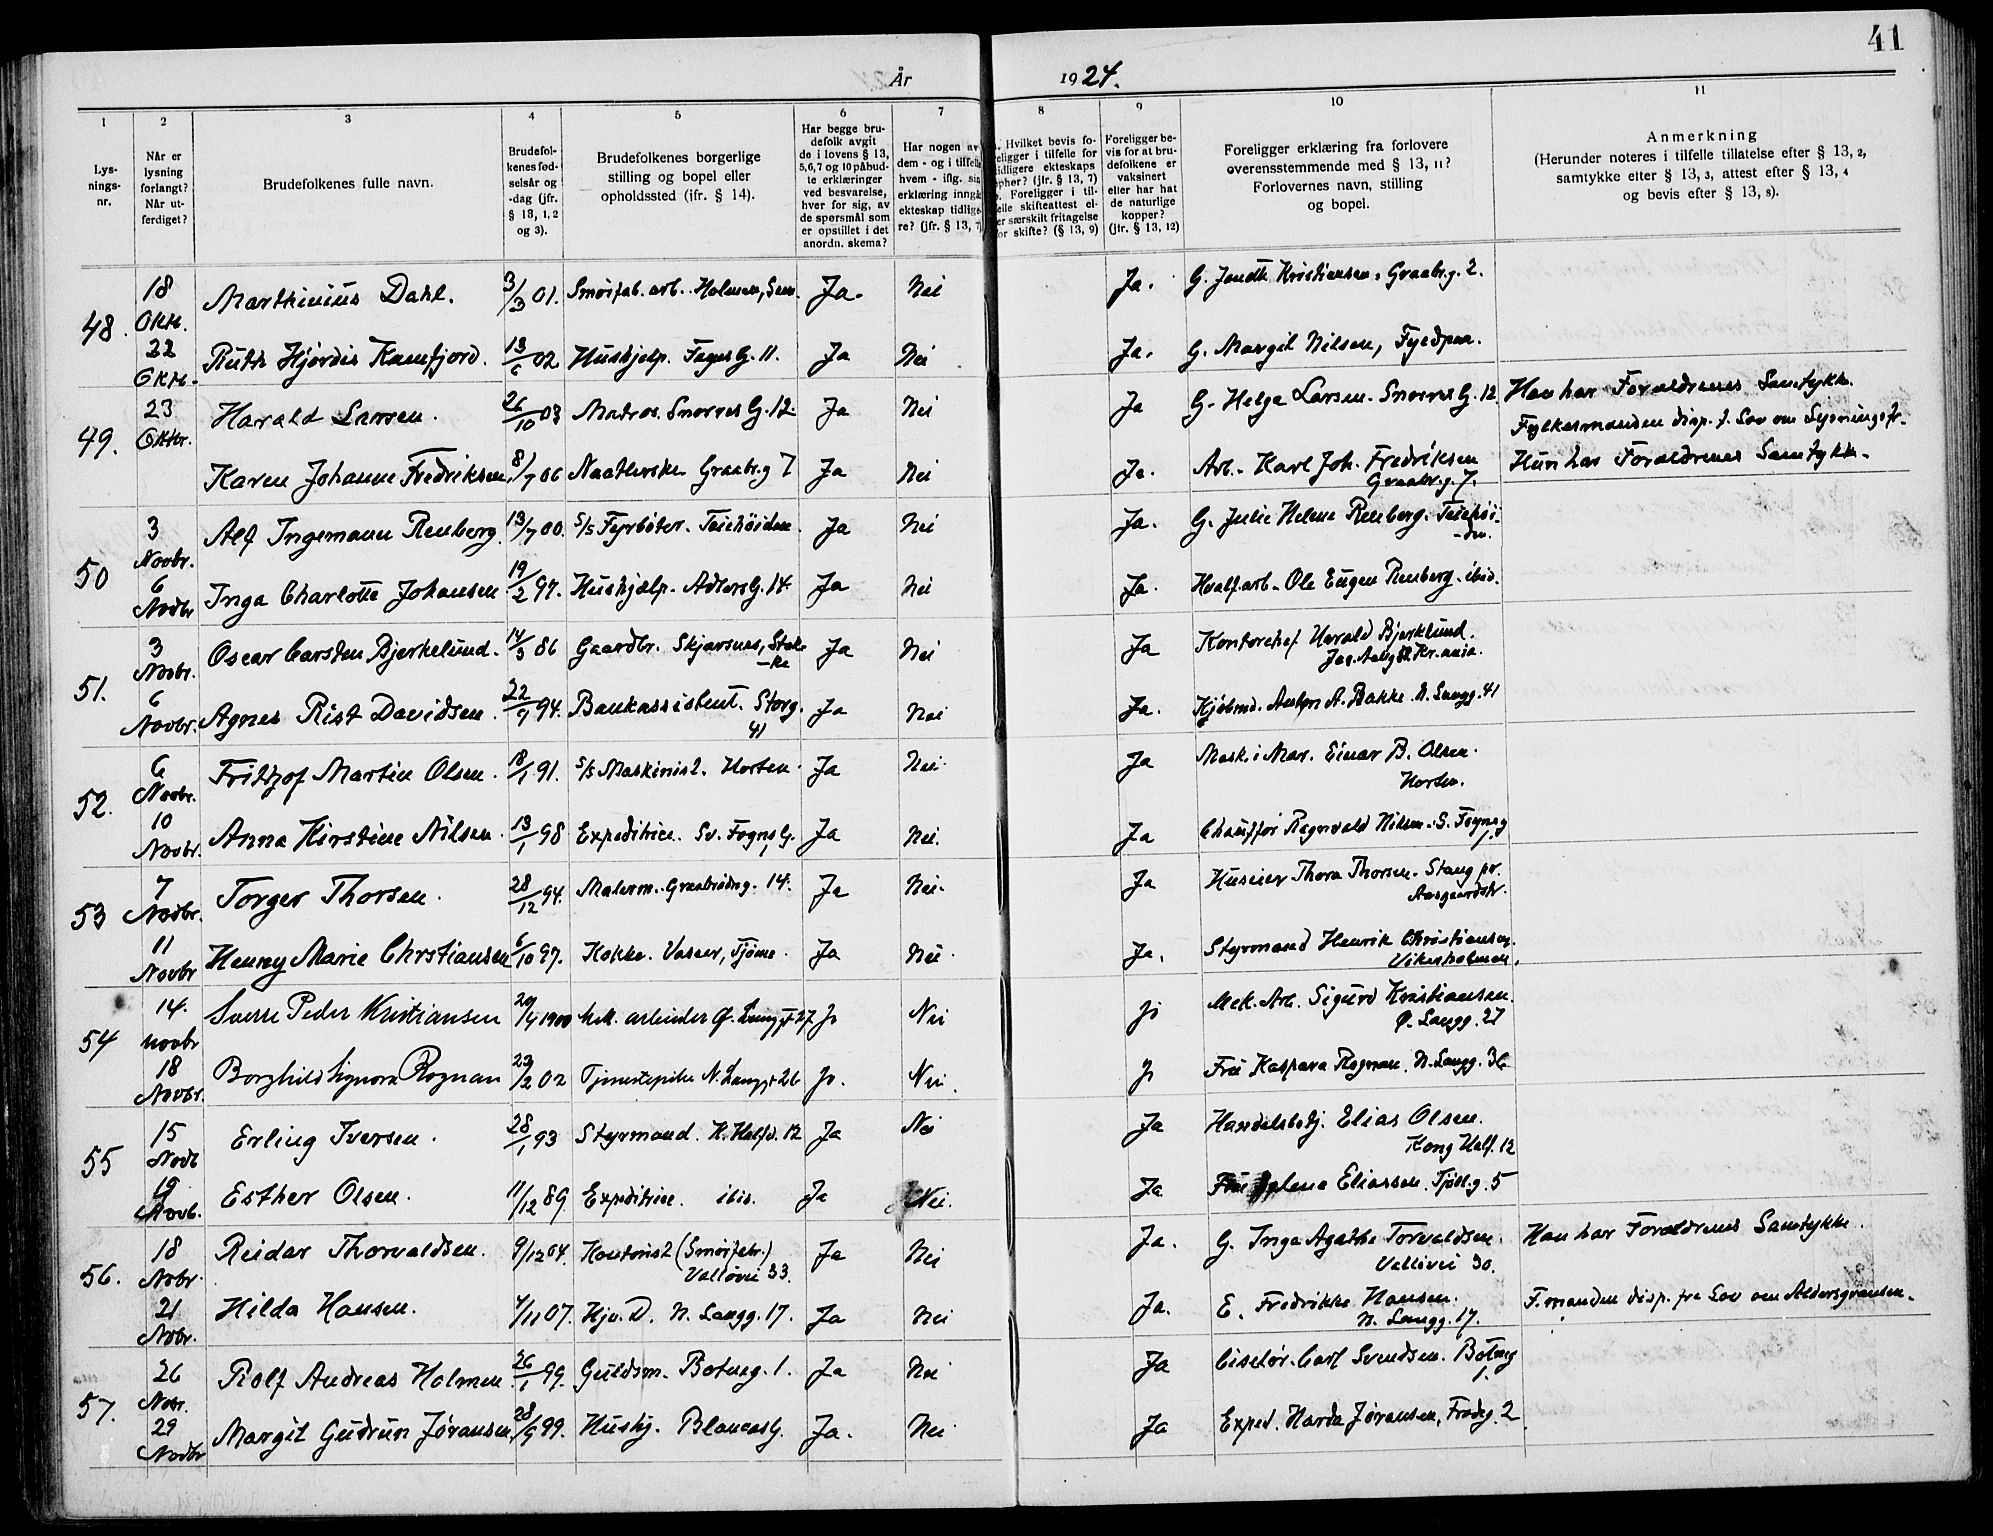 41
År 1924.
1 2 3 4 5 6 7 8 9 10 11
Lys-
nings-
nr.
Når er
lysning
forlangt?
Når ut-
ferdiget?
Brudefolkenes fulle navn.
Brudefol-
kenes fød-
selsår og
-dag (jfr.
§ 13, 1, 2
og 3).
Brudefolkenes borgerlige
stilling og bopel eller
opholdssted (ifr. § 14).
Har begge bru-
defolk avgit
de i lovens § 13,
5,6,7 og 10 påbud-
te erklæringer
ved besvarelse,
hver for sig, av
de spørsmål som
er opstillet i det
anordn. skema?
Har nogen av
dem - og i tilfelle
hvem - iflg. sin
erklæring inngå
ekteskap tidlige
re? (jfr. § 13, 7
Hvilket bevis fo-
religger i tilfelle for
tidligere ekteskaps
opher? (jfr. § 13, 7)
Foreligger i til-
felle skifteattest el-
er særskilt fritagelse
for skifte? (§ 13, 9)
Foreligger be-
vis for at bru-
defolkene er
vaksinert
eller har hat
de naturlige
kopper?
(jfr. § 13, 12)
Foreligger erklæring fra forlovere
overensstemmende med § 13, 11?
Forlovernes navn, stilling
og bopel.
Anmerkning
(Herunder noteres i tilfelle tillatelse efter § 13, 2,
samtykke efter § 13, 3, attest efter § 13, 4
og bevis efter § 13, 8).
48. 18 Oktb. Marthinius Dahl. 3/3 01. Smørfab. arb. Holmen, Sem. Ja. Nei Ja. G. Jendth Kristiansen. Graabr.g. 2.
22 Oktb. Ruth Hjørdis Kamfjord. 13/6 02 Hushjelp. Fayes G. 11. Ja Nei Ja. G. Margit Nilsen, Fyldpaa.
49. 23 Oktbr. Harald Larsen. 26/10 03 Matros. Snorres G. 12. Ja Nei Ja G. Helga Larsen. Snorres G. 12 Han har Forældrenes Samtykke.
Fylkesmanden disp. f. Lov om Lysningsfr.
Karen Johanne Fredriksen. 8/7 06 Naatlerske Graabr.g 7 Ja Nei Ja. Arb. Karl Joh. Fredriksen Hun har Forældrenes Samtykke.
Graabr.g. 7.
50 3 Novbr. Alf Ingemann Renberg. 13/7 00. s/s Fyrbøter. Teiehøiden. Ja Nei Ja. G. Julie Helene Renberg. Teiehøi-
-den.
6 Novbr Inga Charlotte Johansen. 19/2 97. Hushjælp. Adlers G. 14. Ja Nei Ja. Hvalf.arb. Ole Eugen Renberg. ibid.
51. 3 Novbr. Oscar Carsten Bjerkelund. 14/3 86 Gaardbr. Skjærsnes, Stok-
-ke Ja Nei Ja Kontorchef Harald Bjerklund.
Kr.ania.
6 Novbr. Agnes Rist Davidsen. 22/9 94. Bankassistent. Storg. Ja Nei Ja. Kjøbmd. A. Bakke. N. Langg. 41
41
52. 6 Novbr. Fritjof Martin Olsen. 18/1 91. s/s Maskinist. Horten. Ja Nei Ja Mask. i Mar. Einar B. Olsen.
Horten.
10 Novbr. Anna Kirstine Nilsen. 13/1 98 Expeditrice. Sv. Foyns G. Ja Nei. Ja Chauffør Ragnvald Nilsen. S. Foynsg
1.
53 7 Novbr. Torger Thorsen. 28/12 94. Malerm. Graabrødrg. 14. Ja Nei. Ja Huseier Thora Thorsen. Stang pr.
Aasgaardstr.
11 Novbr Henny Marie Chrstiansen 6/10 97. Kokke. Vasser, Tjøme. Ja Nei. Ja. Styrmand Henrik Christiansen.
Vikerholmen.
54 14. novbr Sverre Peder Kristiansen 20/4 1900 Mek. arbeider Ø. Langgt 27 Ja Nei Ja Mek. Arb. Sigurd Kristiansen.
Ø. Langg. 27
18 Novbr. Borghild Signora Rognan 23/2 02 Tjenestepike N. Langgt 26 Ja. Nei. Ja Frü Kaspara Rognan. N. Langg. 36
55 15 Novb Erling Iversen. 28/1 93 Styrmand. K. Halfd. 12 Ja Nei Ja Handelsbetj. Elias Olsen.
Kong Half. 12
19 Novb. Esther Olsen. 11/12 89. Expeditrice. ibid. Ja Nei. Ja Frü Eliassen. Tjøll.g. 5
56. 18 Nobr. Reidar Thorvaldsen. 9/12 04. Kontorist (Smørfabr.) Ja Nei Ja. G. Inga Agathe Torvaldsen. Han har Forældrenes Samtykke.
Valløvei 33. Valløvei 30.
21 Nobr. Hilda Hansen. 4/11 07. Hjv. D. N. Langg. 17. Ja Nei Ja. E. Fredrikke Hansen. F.manden disp. fra Lov om Aldersgrænsen.
N. Langg. 17.
57. 26 Nobr. Rolf Andreas Holmen. 26/1 99. Guldsm. Botneg. 1. Ja Nei Ja Ciselør. Carl Svendsen. Botneg
1.
29 Novbr Margit Gudrun Jøransen. 28/9 99. Hushj. Blancas G. Ja. Nei Ja Exped. Harda Jøransen, Frodeg. 2